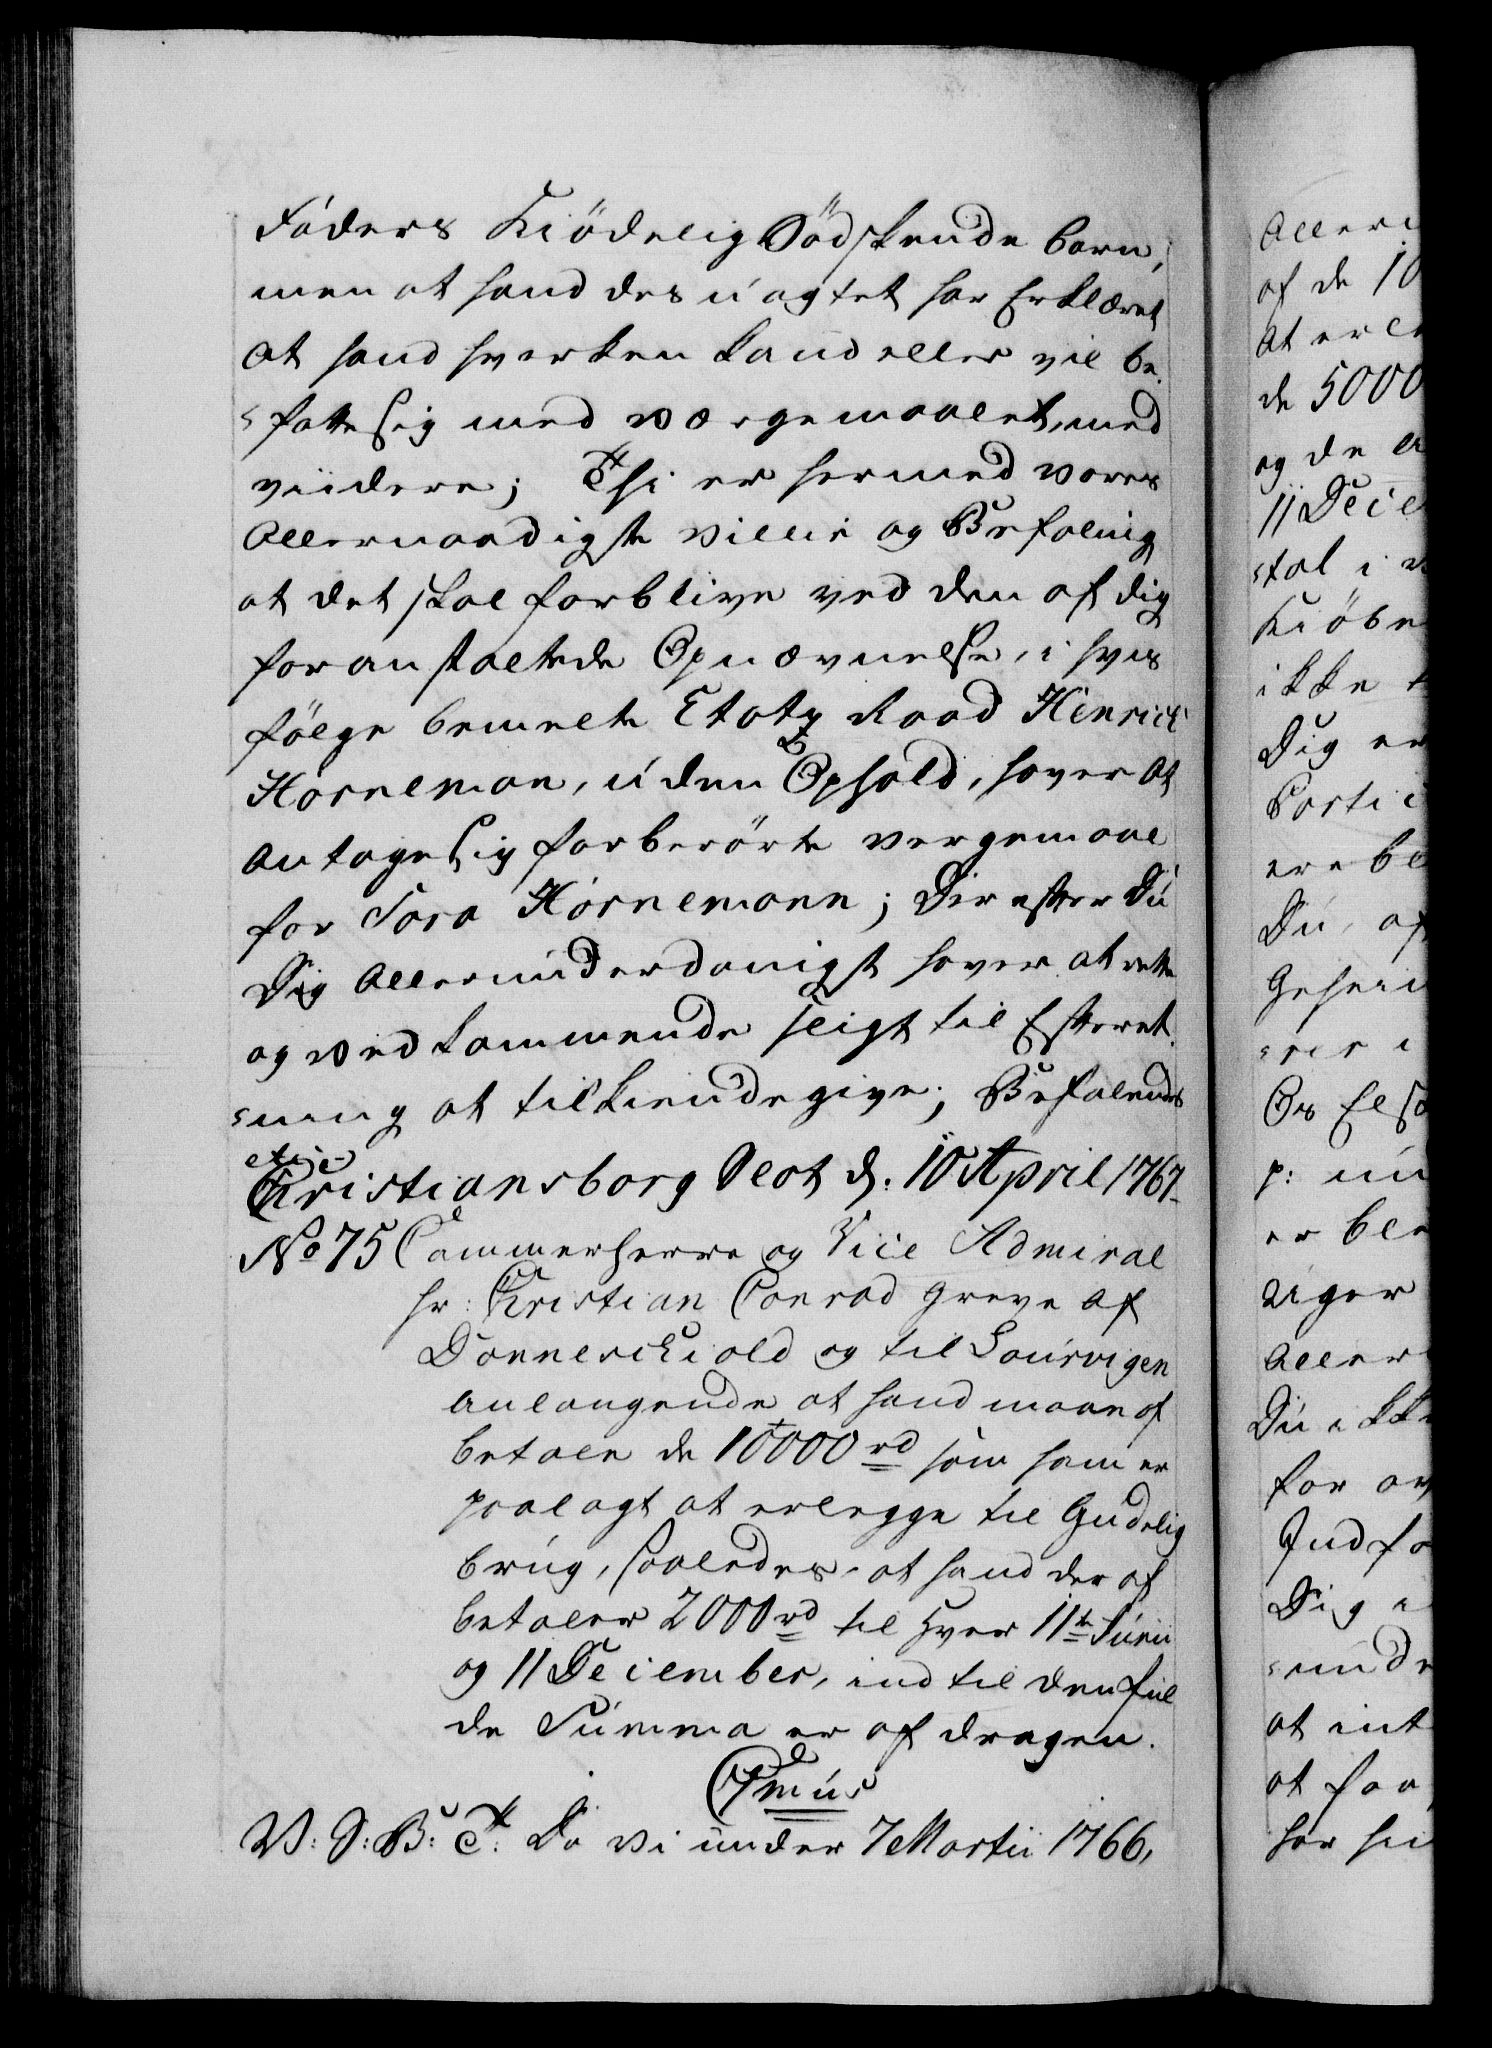 Faders Kiödelig Södskende barn,
men at hand des uagtet har Erklæret
at hand hverken kand eller vil be-
-fatte sig med værgemaalet, med
viidere; Thi er hermed vores
Allernaadigste villie og Befaling
at det skal forblive ved den af dig
foranstaltede Opnævnelse, i hvis
fölge bemelte Etatz Raad Hinrich
Horneman, uden Ophold, haver at
antage sig forberörte vergemaal
for Sara Hornemann; Der efter Du
Dig allerunderdanigst haver at rette
og vedkommende sligt til Efterret-
-ning at tilkiendegive; Befalendes
etc:
Christiansborg Slot d: 10 April 1767
No 75 Cammerherre og Vice Admiral
hr: Christian Conrad Greve af
Danneschiold og til Laurvigen
anlangende at hand maae af
betale de 10000 rd som ham er
paalagt at erlegge til Gudelig
brug, saaledes, at hand der af
betaler 2000 rd til hver 11te Junii
og 11 December, ind til den ful
de Summa er af dragen.
V: S: B: T: Da vi under 7 Martii 1766,
Aller
af de 10
at erle
de 5000
og de
11 Dece
Kiöbe
ikke
Dig er
Parti
ere be
Du, af
Gehei
Os Elsk
p: un
er ble
Uger
Aller
Du ikke
for
Ind fo
Dig
at int
at faa
har